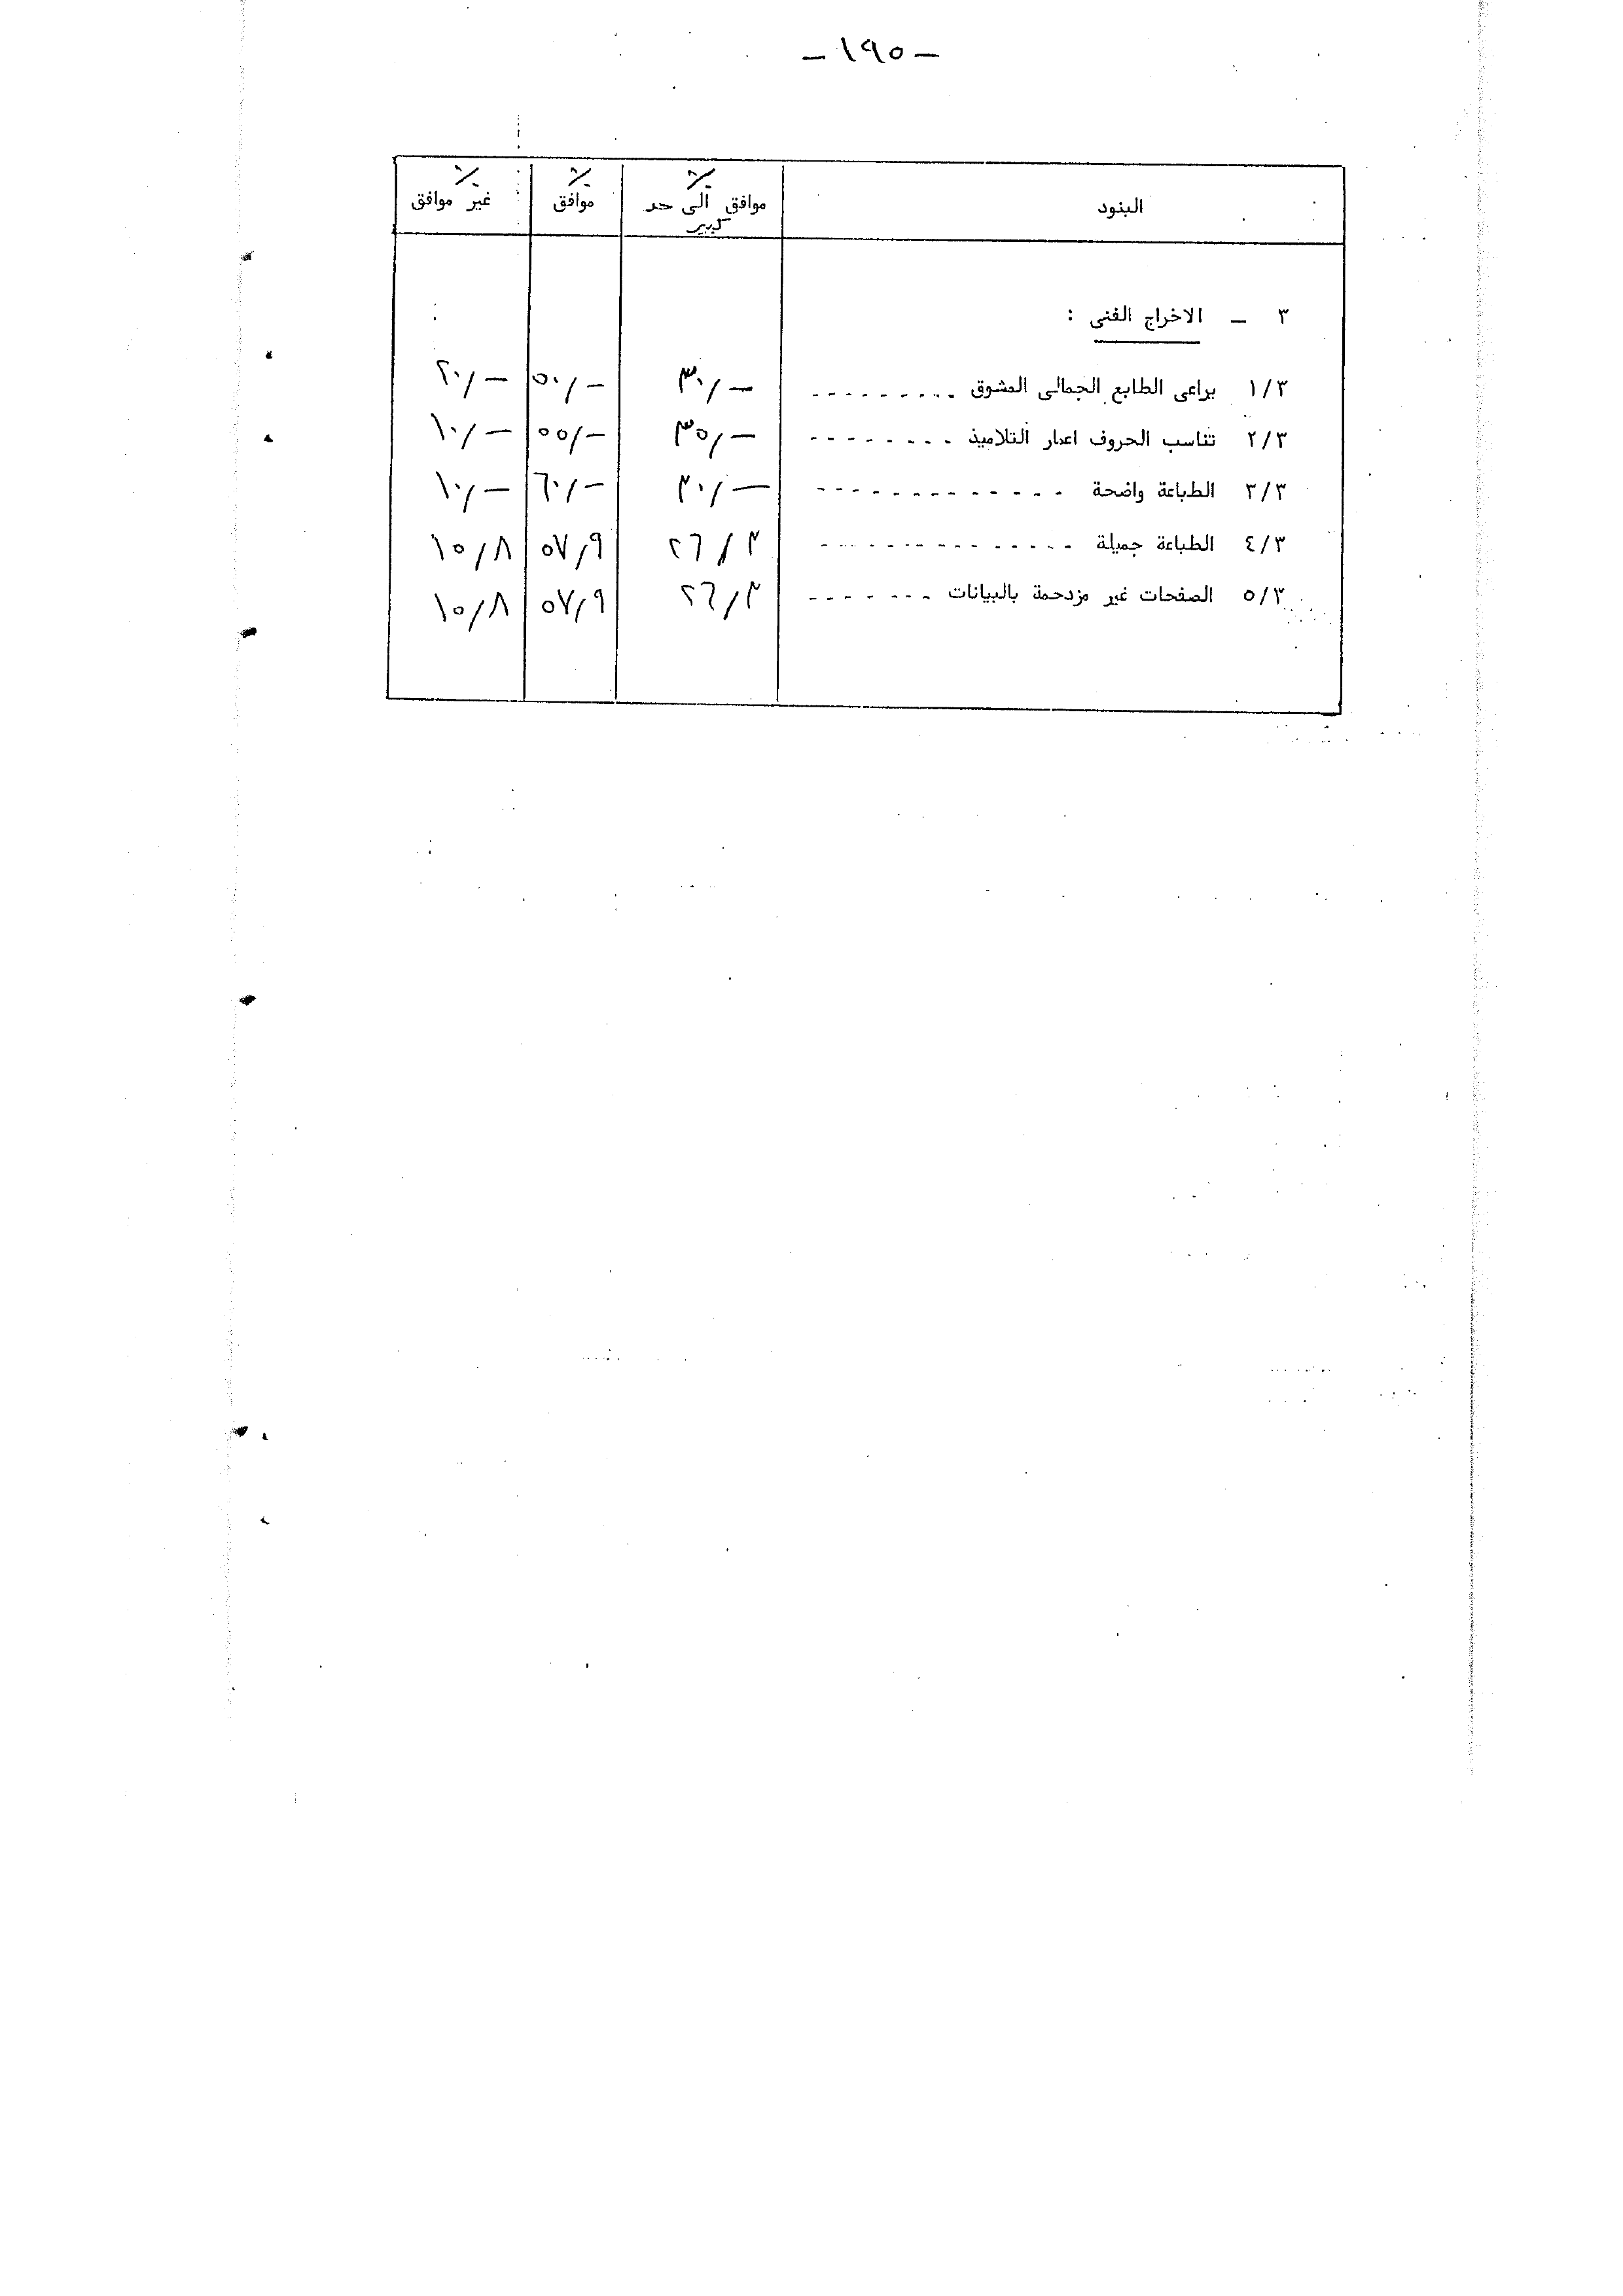 - ١٩٥ -
البنود | ٪ موافق الى حد كبير | ٪ موافق | ٪ غير موافق
٣ - الاخراج الفنى :
١/٣ يراعى الطابع الجمالى المشوق --------- ٣٠,- | ٥٠,- | ٢٠,-
٢/٣ تناسب الحروف اعمار التلاميذ -------- ٣٥,- | ٥٥,- | ١٠,-
٣/٣ الطباعة واضحة ------------- ٣٠,- | ٦٠,- | ١٠,-
٤/٣ الطباعة جميلة -------------- ٢٦,٣ | ٥٧,٩ | ١٥,٨
٥/٣ الصفحات غير مزدحمة بالبيانات ------- ٢٦,٣ | ٥٧,٩ | ١٥,٨